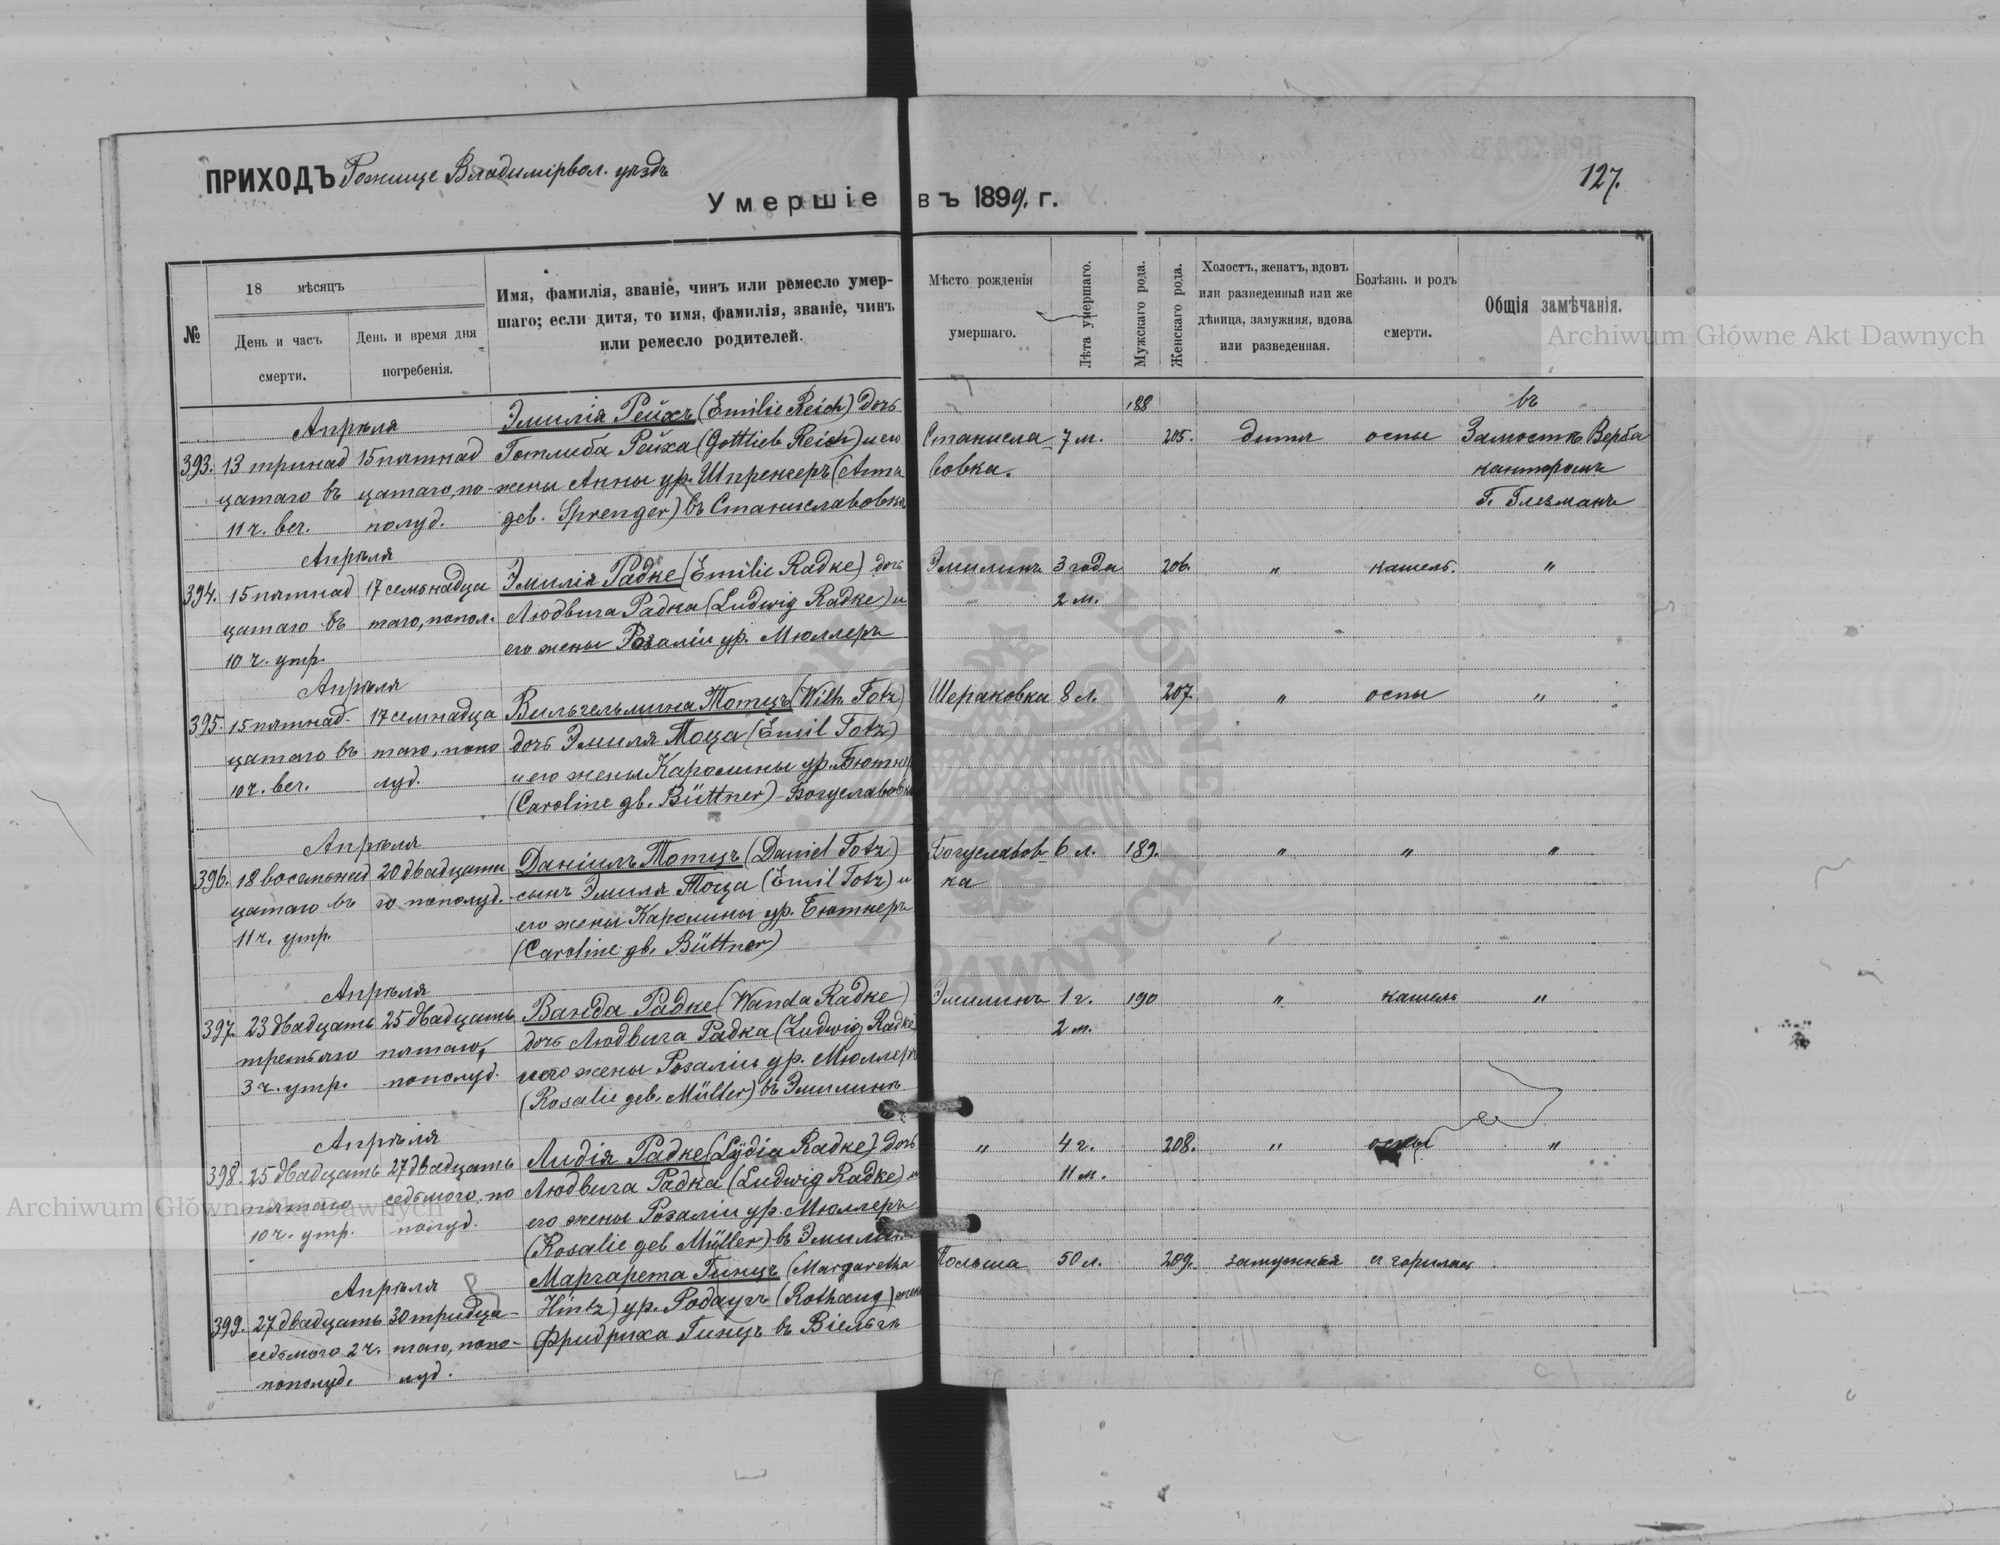 ПРИХОДЪ Рожище Владимірвол. уѣздъ
127.
Умершіе въ 1899. г.
№
18 мѣсяцъ
День и часъ смерти.
День и время дня погребенія.
Имя, фамилія, званіе, чинъ или ремесло умер-
шаго; если дитя, то имя, фамилія, званіе, чинъ
или ремесло родителей.
Мѣсто рожденія
умершаго.
Лѣта умершаго.
Мужскаго рода.
Женскаго рода.
Холостъ, женатъ, вдовъ
или разведенный или же
дѣвица, замужняя, вдова
или разведенная.
Болѣзнь и родъ
смерти.
Общія замѣчанія.
Archiwum Główne Akt Dawnych
Апрѣля Эмилія Рейхъ (Emilie Reich) дочь 188 въ
393. 13 тринад 15 пятнад Готлиба Рейха (Gottlieb Reich) и его Станисла 7 м. 205. дитя оспы Замосткѣ Верба
цатаго въ цатаго, по жены Анны ур. Шпренгеръ (Anna вовка. канторомъ
11 ч. веч. полуд. geb. Sprenger) въ Станиславовкѣ Г. Глезманъ
Апрѣля
394. 15 пятнад 17 семьнадца Эмилія Радке (Emilie Radke) дочь Эмилинъ 3 года 206. " кашель. "
цатаго въ таго, попол. Людвига Радка (Ludwig Radke) и 2 м.
10 ч. утр. его жены Розаліи ур. Мюллеръ
Апрѣля
395. 15 пятнад- 17 семнадца Вильгельмина Тотцъ (Wilh. Totz) Шераковка 8 л. 207. " оспы "
цатаго въ таго, попо дочь Эмиля Тоца (Emil Totz)
10 ч. веч. луд. и его жены Каролины ур. Бютнеръ
(Caroline gb. Büttner) Богуславовка
Апрѣля
396. 18 восемьнад 20 двадцата Даніилъ Тотцъ (Daniel Totz) Богуславов- 6 л. 189. " " "
цатаго въ го пополуд. сынъ Эмиля Тоца (Emil Totz) и ка
11 ч. утр. его жены Каролины ур. Бютнеръ
(Caroline gb. Büttner)
Апрѣля
397. 23 двадцать 25 двадцать Ванда Радке (Wanda Radke) Эмилинъ 1 г. 190 " кашель "
третьяго пятаго, дочь Людвига Радка (Ludwig Radke) 2 м.
3 ч. утр. пополуд. и его жены Розаліи ур. Мюллеръ
(Rosalie geb. Müller) въ Эмилинѣ
Апрѣля
398. 25 двадцать 27 двадцать Лидія Радке (Lydia Radke) дочь " 4 г. 208. " оспы "
пятаго седьмого, по Людвига Радка (Ludwig Radke) и 11 м.
10 ч. утр. полуд. его жены Розаліи ур. Мюллеръ
(Rosalie geb Müller) въ Эмилинѣ
Апрѣля Маргарета Гинцъ (Margaretha Польша 50 л. 209. замужняя
399. 27 двадцать 30 тридца- Hintz) ур. Родаугъ (Rothaug) жена
седьмого 2 ч. таго, попо- Фридриха Гинцъ въ Віельгѣ
пополуд. луд.
Archiwum Główne Akt Dawnych